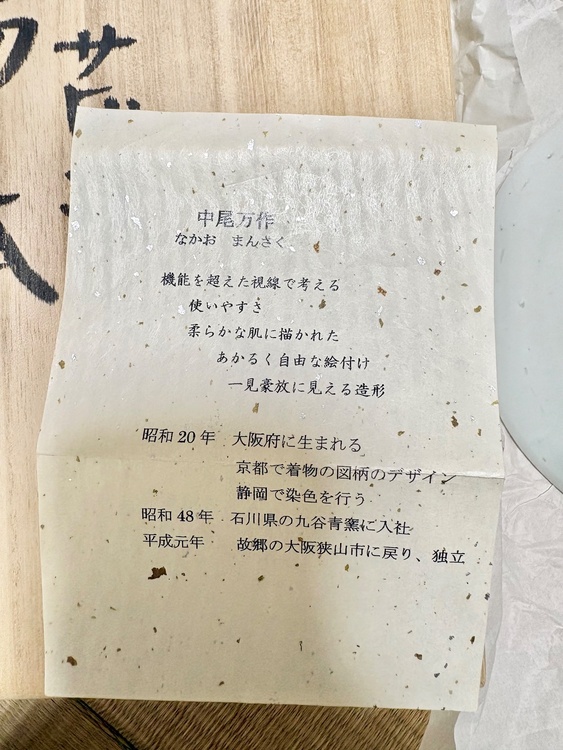 中尾万作
なかお まんさく
機能を超えた視線で考える
使いやすさ
柔らかな肌に描かれた
あかるく自由な絵付け
一見豪放に見える造形
昭和20年 大阪府に生まれる
京都で着物の図柄のデザイン
静岡で染色を行う
昭和48年 石川県の九谷青窯に入社
平成元年 故郷の大阪狭山市に戻り、独立